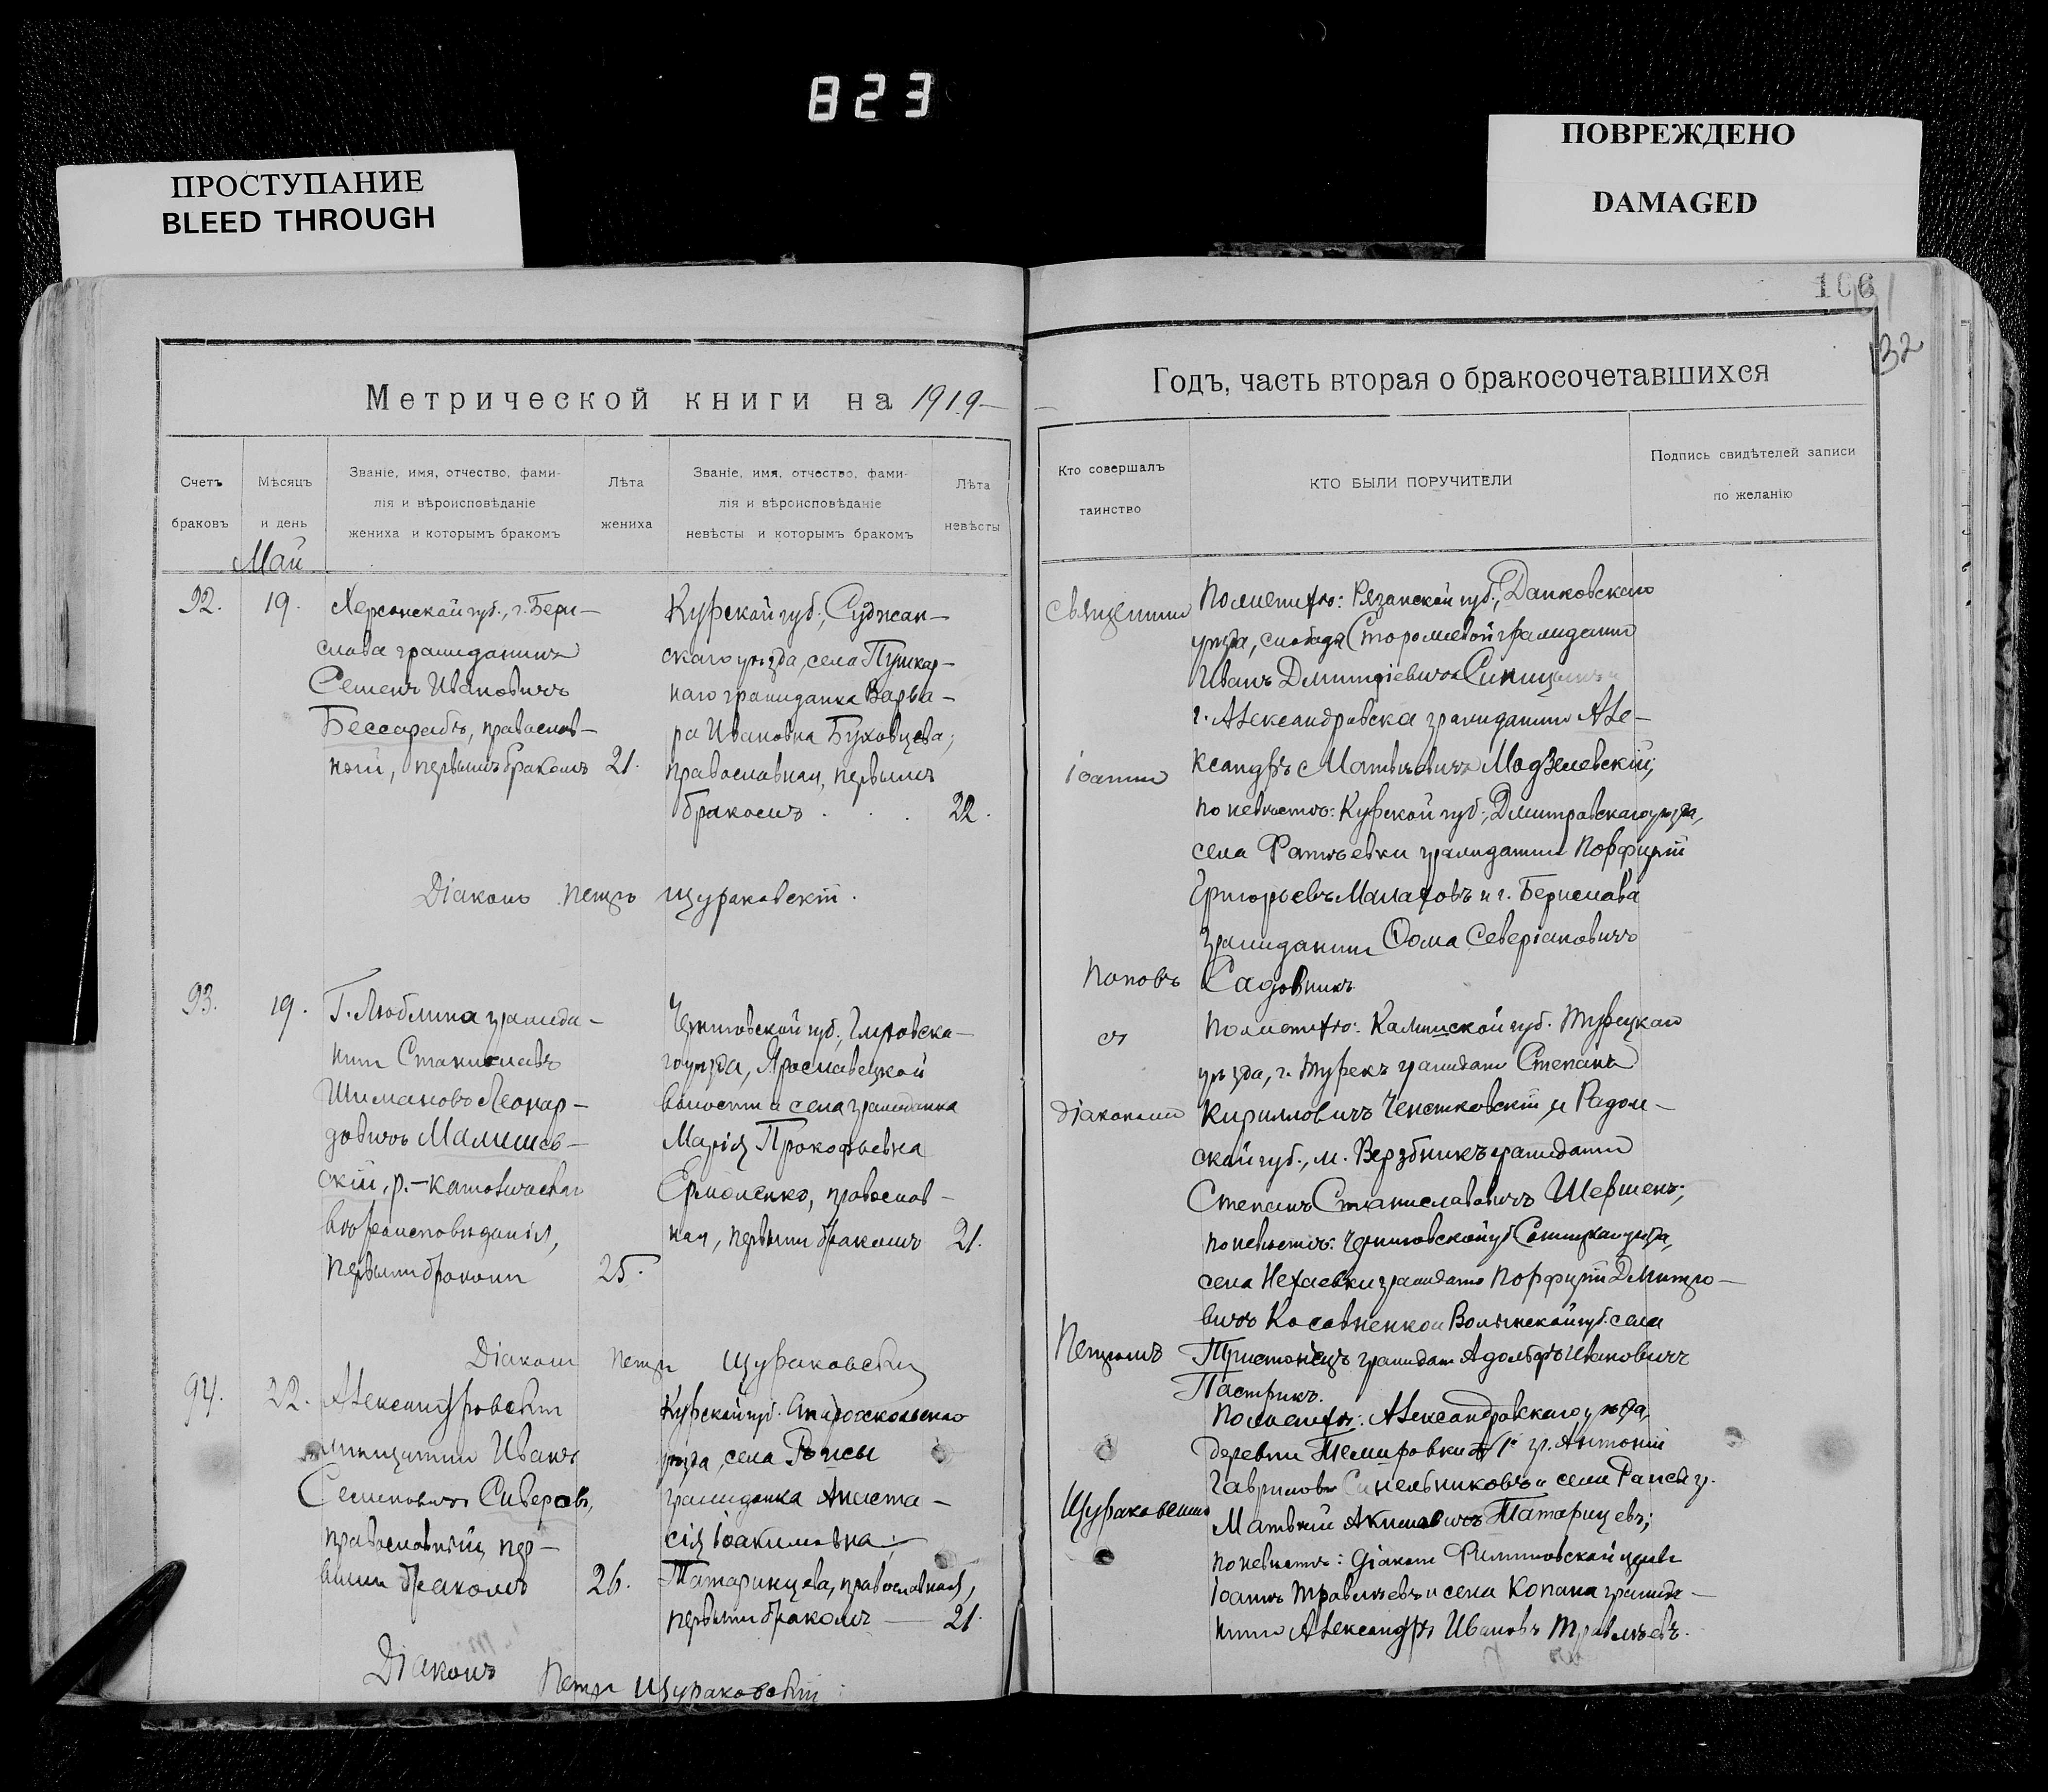 823
ПРОСТУПАНИЕ
BLEED THROUGH
ПОВРЕЖДЕНО
DAMAGED
106
132
Метрической книги на 1919
Счетъ браковъ
Мѣсяцъ и день
Званіе, имя, отчество, фами-
лія и вѣроисповѣданіе
жениха и которымъ бракомъ
Лѣта жениха
Званіе, имя, отчество, фами-
лія и вѣроисповѣданіе
невѣсты и которымъ бракомъ
Лѣта невѣсты
Май
92.
19.
Херсонской губ., г. Бери-
слава гражданинъ
Семенъ Ивановичъ
Бессарабъ, православ-
ный, первымъ бракомъ
21.
Курской губ., Суджан-
скаго уѣзда, села Пушкар-
наго гражданка Варва-
ра Ивановна Буховцева;
православная, первымъ
бракомъ
22.
Діаконъ Петръ Щураковскій.
93.
19.
Г. Люблина гражда-
нин Станиславъ
Шимановъ Леонар-
довичъ Малишев-
скій, р.-католическаго
вѣроисповѣданія,
первымъ бракомъ
25.
Черниговской губ., Глуховска-
го уѣзда, Ярославецкой
волости и села гражданка
Марія Прокофьевна
Ермоленко, православ-
ная, первымъ бракомъ
21.
Діаконъ Петръ Щураковскій
94.
22.
Александровскій
мѣщанинъ Иванъ
Семеновичъ Сиверовъ,
православный, пер-
вымъ бракомъ
26.
Курской губ. Старооскольскаго
уѣзда, села
гражданка Анаста-
сія Іоакимовна
Татаринцева, православная,
первымъ бракомъ
21.
Діаконъ
Петръ Щураковскій
Годъ, часть вторая о бракосочетавшихся
Кто совершалъ таинство
КТО БЫЛИ ПОРУЧИТЕЛИ
Подпись свидѣтелей записи
по желанію
Священникъ
Іоаннъ
Поповъ
съ
діакономъ
Петромъ
Щураковскимъ
По женихѣ: Рязанской губ., Данковскаго
уѣзда, слобода Сторожевой гражданинъ
Иванъ Димитріевичъ Синицынъ и
г. Александровска гражданинъ Але-
ксандръ Матвѣевичъ Модзелевскій;
по невѣстѣ: Курской губ., Дмитровскаго уѣзда,
села гражданинъ Порфирій
Григорьевъ Малаховъ и г. Берислава
гражданинъ Ѳома Северіановичъ
Садовникъ
По женихѣ: Калишской губ. Турецкаго
уѣзда, г. Турекъ гражданинъ Степанъ
Кирилловичъ Ченстковскій и Радом-
ской губ., м. Верзбникъ гражданинъ
Степанъ Станиславовичъ Шершень;
по невѣстѣ: Черниговской губ. Сосницкаго уѣзда,
села Нехаевки гражданинъ Порфирій Дмитріе-
вичъ Косавненко и Волынской губ. села
гражданинъ Адольфъ Ивановичъ
Пастрикъ.
По женихѣ: Александровскаго уѣзда,
деревни Темировки гр. Антоній
Гавриловъ Синельниковъ и села
Матвѣй Акимовичъ Татаринцевъ;
по невѣстѣ: діаконъ церкви
Іоаннъ Травлѣевъ и села Копани гражда-
нинъ Александръ Ивановъ Травлѣевъ.